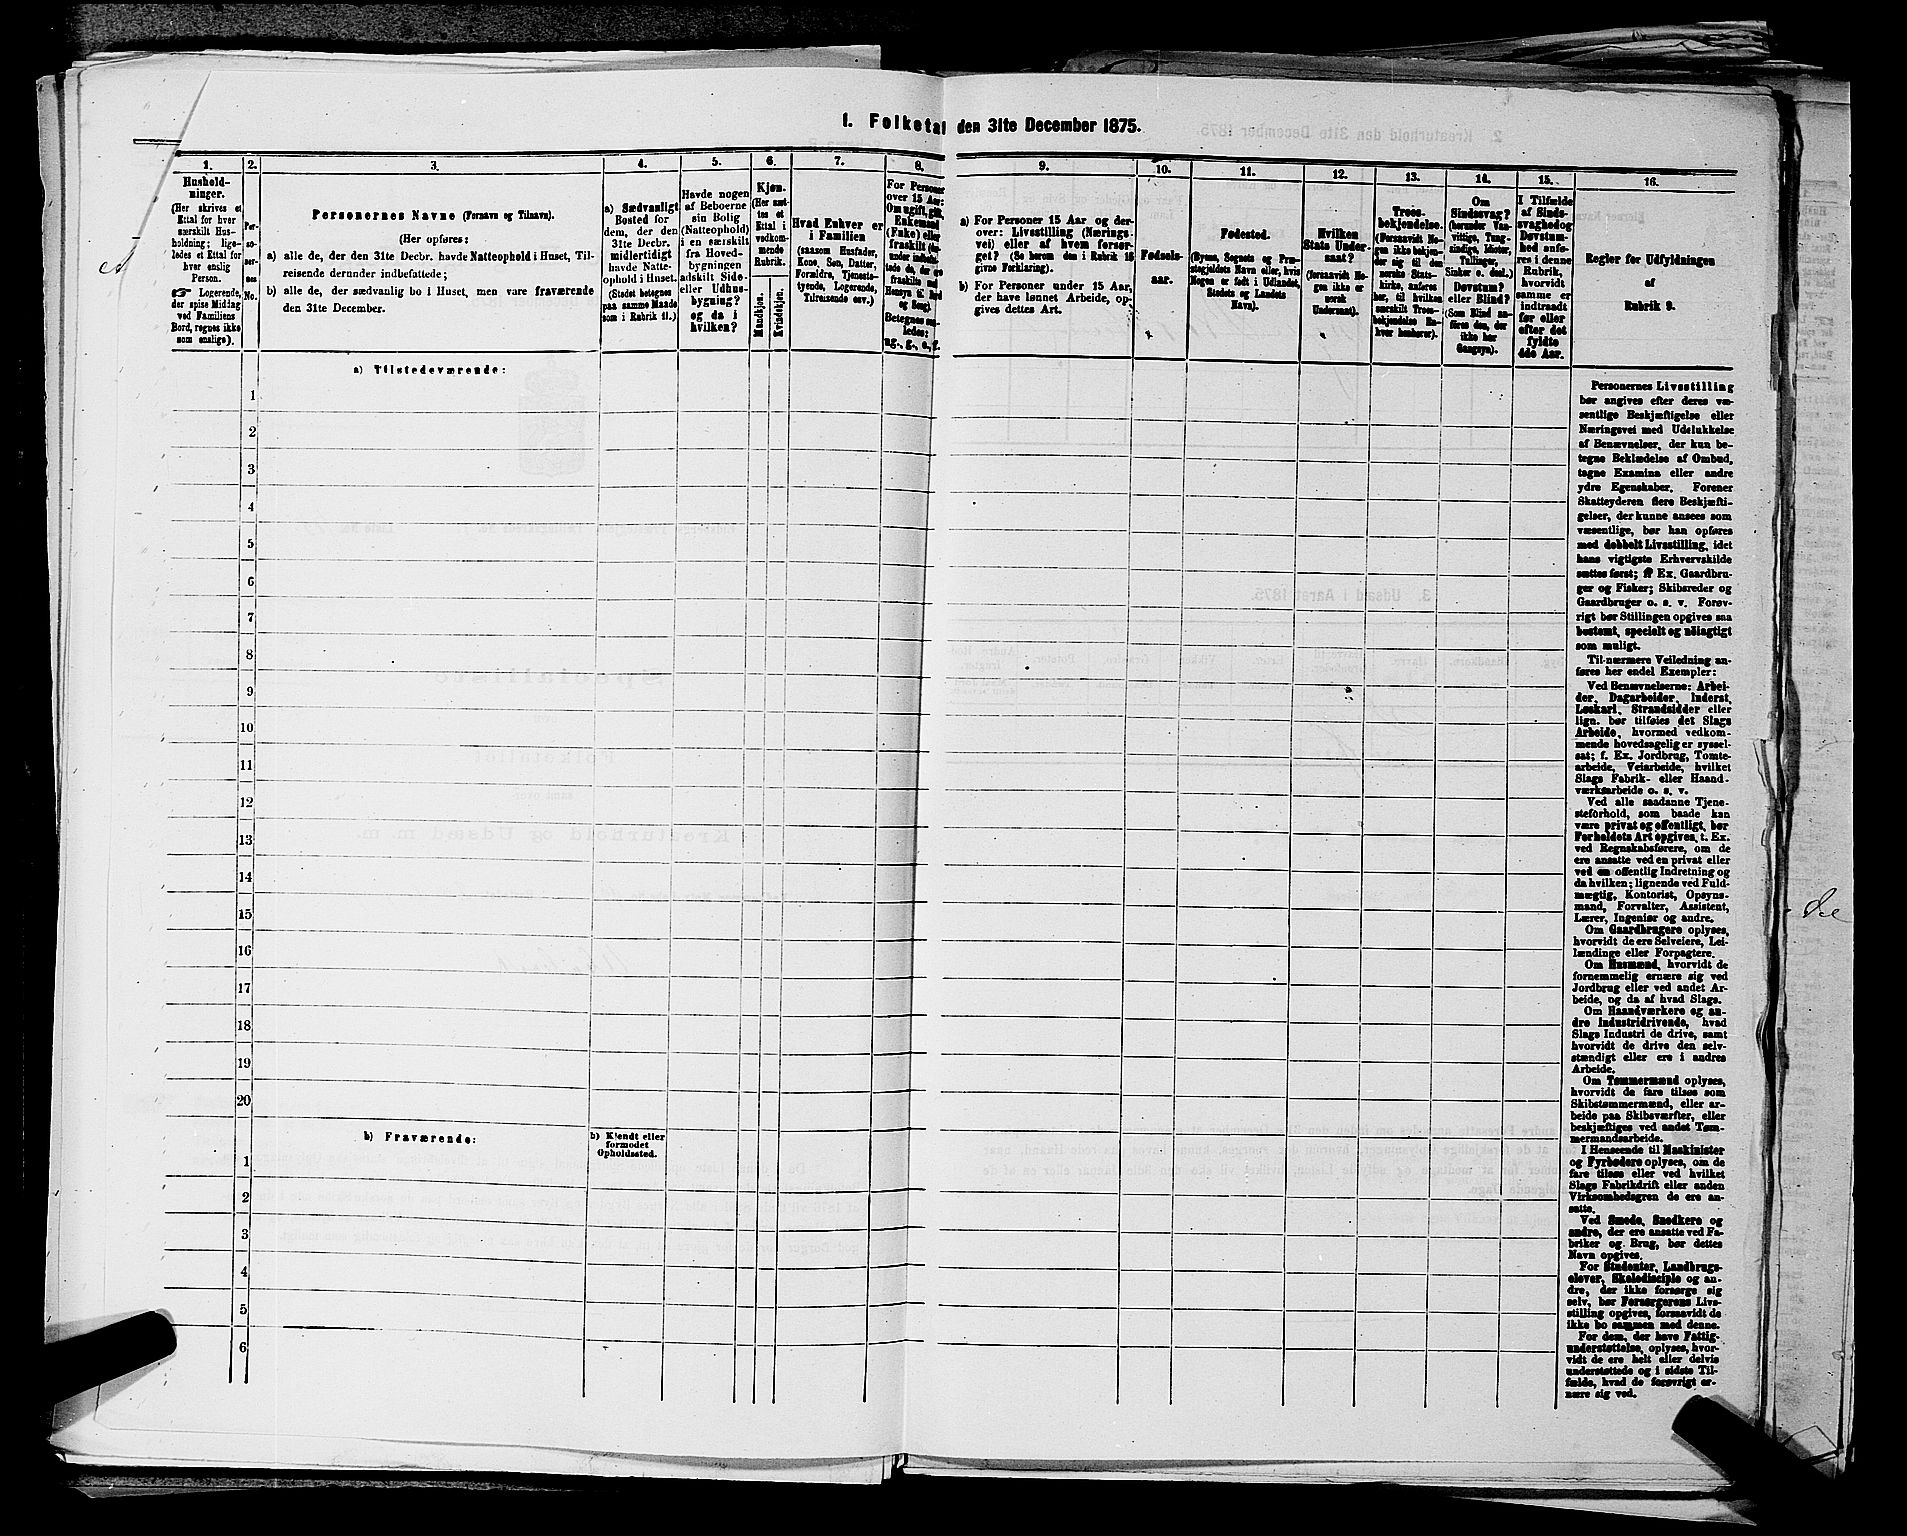 1. Folketal den 31te December 1875.
1.
Hushold-
ninger.
(Her skrives et
Ettal for hver
særskilt Hus-
holdning; lige-
ledes et Ettal for
hver enslig
Person.
☞ Logerende,
der spise Middag
ved Familiens
Bord, regnes ikke
som enslige).
2.
Per-
so-
ner-
nes
No.
3.
Personernes Navne (Fornavn og Tilnavn).
(Her opføres:
a) alle de, der den 31te Decbr. havde Natteophold i Huset, Til-
reisende derunder indbefattede;
b) alle de, der sædvanlig bo i Huset, men vare fraværende
den 31te December.
4.
a) Sædvanligt
Bosted for
dem, der den
31te Decbr.
midlertidigt
havde Natte-
ophold i Huset.
(Stedet betegnes
paa samme Maade
som i Rubrik 11.)
5.
Havde nogen
af Beboerne
sin Bolig
(Natteophold)
i en særskilt
fra Hoved-
bygningen
adskilt Side-
eller Udhus-
bygning?
og da i
hvilken?
6.
Kjøn.
(Her sæt-
tes et
Ettal i
vedkom-
mende
Rubrik.
Mandkjøn.
Kvindekjøn.
7.
Hvad Enhver er
i Familien
(saasom Husfader,
Kone, Søn, Datter,
Forældre, Tjeneste-
tyende, Logerende,
Tilreisende osv.)
8.
For Personer
over 15 Aar:
Om ugift, gift,
Enkemand
(Enke) eller
fraskilt
ug., g., e., f.
9.
a) For Personer 15 Aar og der-
over: Livsstilling (Nærings-
vei) eller af hvem forsør-
get? (Se herom den i Rubrik 16
givne Forklaring).
b) For Personer under 15 Aar,
der have lønnet Arbeide, op-
gives dettes Art.
10.
Fødsels-
aar.
11.
Fødested.
(Byens, Sognets og Præ-
stegjeldets Navn eller, hvis
Nogen er født i Udlandet,
Stedets og Landets
Navn).
12.
Hvilken
Stats Under-
saat?
(forsaavidt No-
gen ikke er
norsk
Undersaat).
13.
Troes-
bekjendelse.
(Forsaavidt No-
gen ikke bekjen-
der sig til den
norske Stats-
kirke, anføres
her, til hvilken
særskilt Troes-
bekjendelse En-
hver henhører).
14.
Om
Sindssvag?
(herunder Van-
vittige, Tung-
sindige, Idioter,
Tullinger,
Sinker o. desl.)
Døvstum?
eller Blind?
(Som Blind an-
føres den, der
ikke har
Gangsyn).
15.
I Tilfælde
af Sinds-
svaghed og
Døvstum-
hed anfø-
res i denne
Rubrik,
hvorvidt
samme er
indtraadt
før eller
efter det
fyldte
4de Aar.
16.
Regler for Udfyldningen
af
Rubrik 9.
a) Tilstedeværende:
1
2
3
4
5
6
7
8
9
10
11
12
13
14
15
16
17
18
19
20
b) Fraværende:
b) Kjendt eller
formodet
Opholdssted.
1
2
3
4
5
6
Personernes Livsstilling
bør angives efter deres væ-
sentlige Beskjæftigelse eller
Næringsvei med Udelukkelse
af Benævnelser, der kun be-
tegne Beklædelse af Ombud,
tagne Examina eller andre
ydre Egenskaber. Forener
Skatteyderen flere Beskjæfti-
gelser, der kunne ansees som
væsentlige, bør han opføres
med dobbelt Livsstilling, idet
hans vigtigste Erhvervskilde
sættes først; f. Ex. Gaardbru-
ger og Fisker; Skibsreder og
Gaardbruger o. s. v. Forøv-
rigt bør Stillingen opgives saa
bestemt, specielt og nøiagtigt
som muligt.
Til nærmere Veiledning an-
føres her endel Exempler:
Ved Benævnelserne: Arbei-
der, Dagarbeider, Inderst,
Løskarl, Strandsidder eller
lign. bør tilføies det Slags
Arbeide, hvormed vedkom-
mende hovedsagelig er syssel-
sat; f. Ex. Jordbrug, Tomte-
arbeide, Veiarbeide, hvilket
Slags Fabrik- eller Haand-
værksarbeide o. s. v.
Ved alle saadanne Tjene-
steforhold, som baade kan
være privat og offentligt, bør
Forholdets Art opgives, t. Ex.
ved Regnskabsførere, om de
ere ansatte ved en privat eller
ved en offentlig Indretning og
da hvilken; lignende ved Fuld-
mægtig, Kontorist, Opsyns-
mand, Forvalter, Assistent,
Lærer, Ingeniør og andre.
Om Gaardbrugere oplyses,
hvorvidt de ere Selveiere, Lei-
lændinge eller Forpagtere.
Om Husmænd, hvorvidt de
fornemmelig ernære sig ved
Jordbrug eller ved andet Ar-
beide, og da af hvad Slags.
Om Haandværkere og an-
dre Industridrivende, hvad
Slags Industri de drive, samt
hvorvidt de drive den selv-
stændigt eller ere i andres
Arbeide.
Om Tømmermænd oplyses,
hvorvidt de fare tilsøs som
Skibstømmermænd, eller ar-
beide paa Skibsværfter, eller
beskjæftiges ved andet Tøm-
mermandsarbeide.
I Henseende til Maskinister
og Fyrbødere oplyses, om de
fare tilsøs eller ved hvilket
Slags Fabrikdrift eller anden
Virksomhedsgren de ere an-
satte.
Ved Smede, Snedkere og
andre, der ere ansatte ved Fa-
briker og Brug, bør dettes
Navn opgives.
For Studenter, Landbrugs-
elever, Skoledisciple og an-
dre, der ikke forsørge sig
selv, bør Forsørgerens Livs-
stilling opgives, forsaavidt de
ikke bo sammen med denne.
For dem, der have Fattig-
understøttelse, oplyses, hvor-
vidt de ere helt eller delvis
understøttede og i sidste Til-
fælde, hvad de forøvrigt er-
nære sig ved.